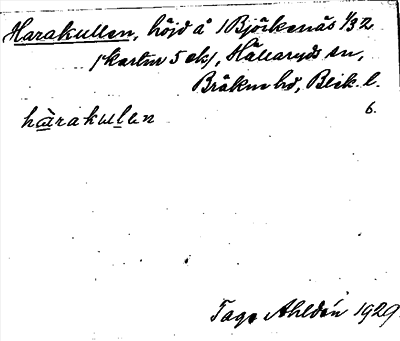 Harakullen, höjd å 1 Björkenäs 1/32
(kartm 5 ek), Hällaryds sn,
Bräkne hd, Blek. l.
6.
hàrakulen
Tage Ahldén 1929.